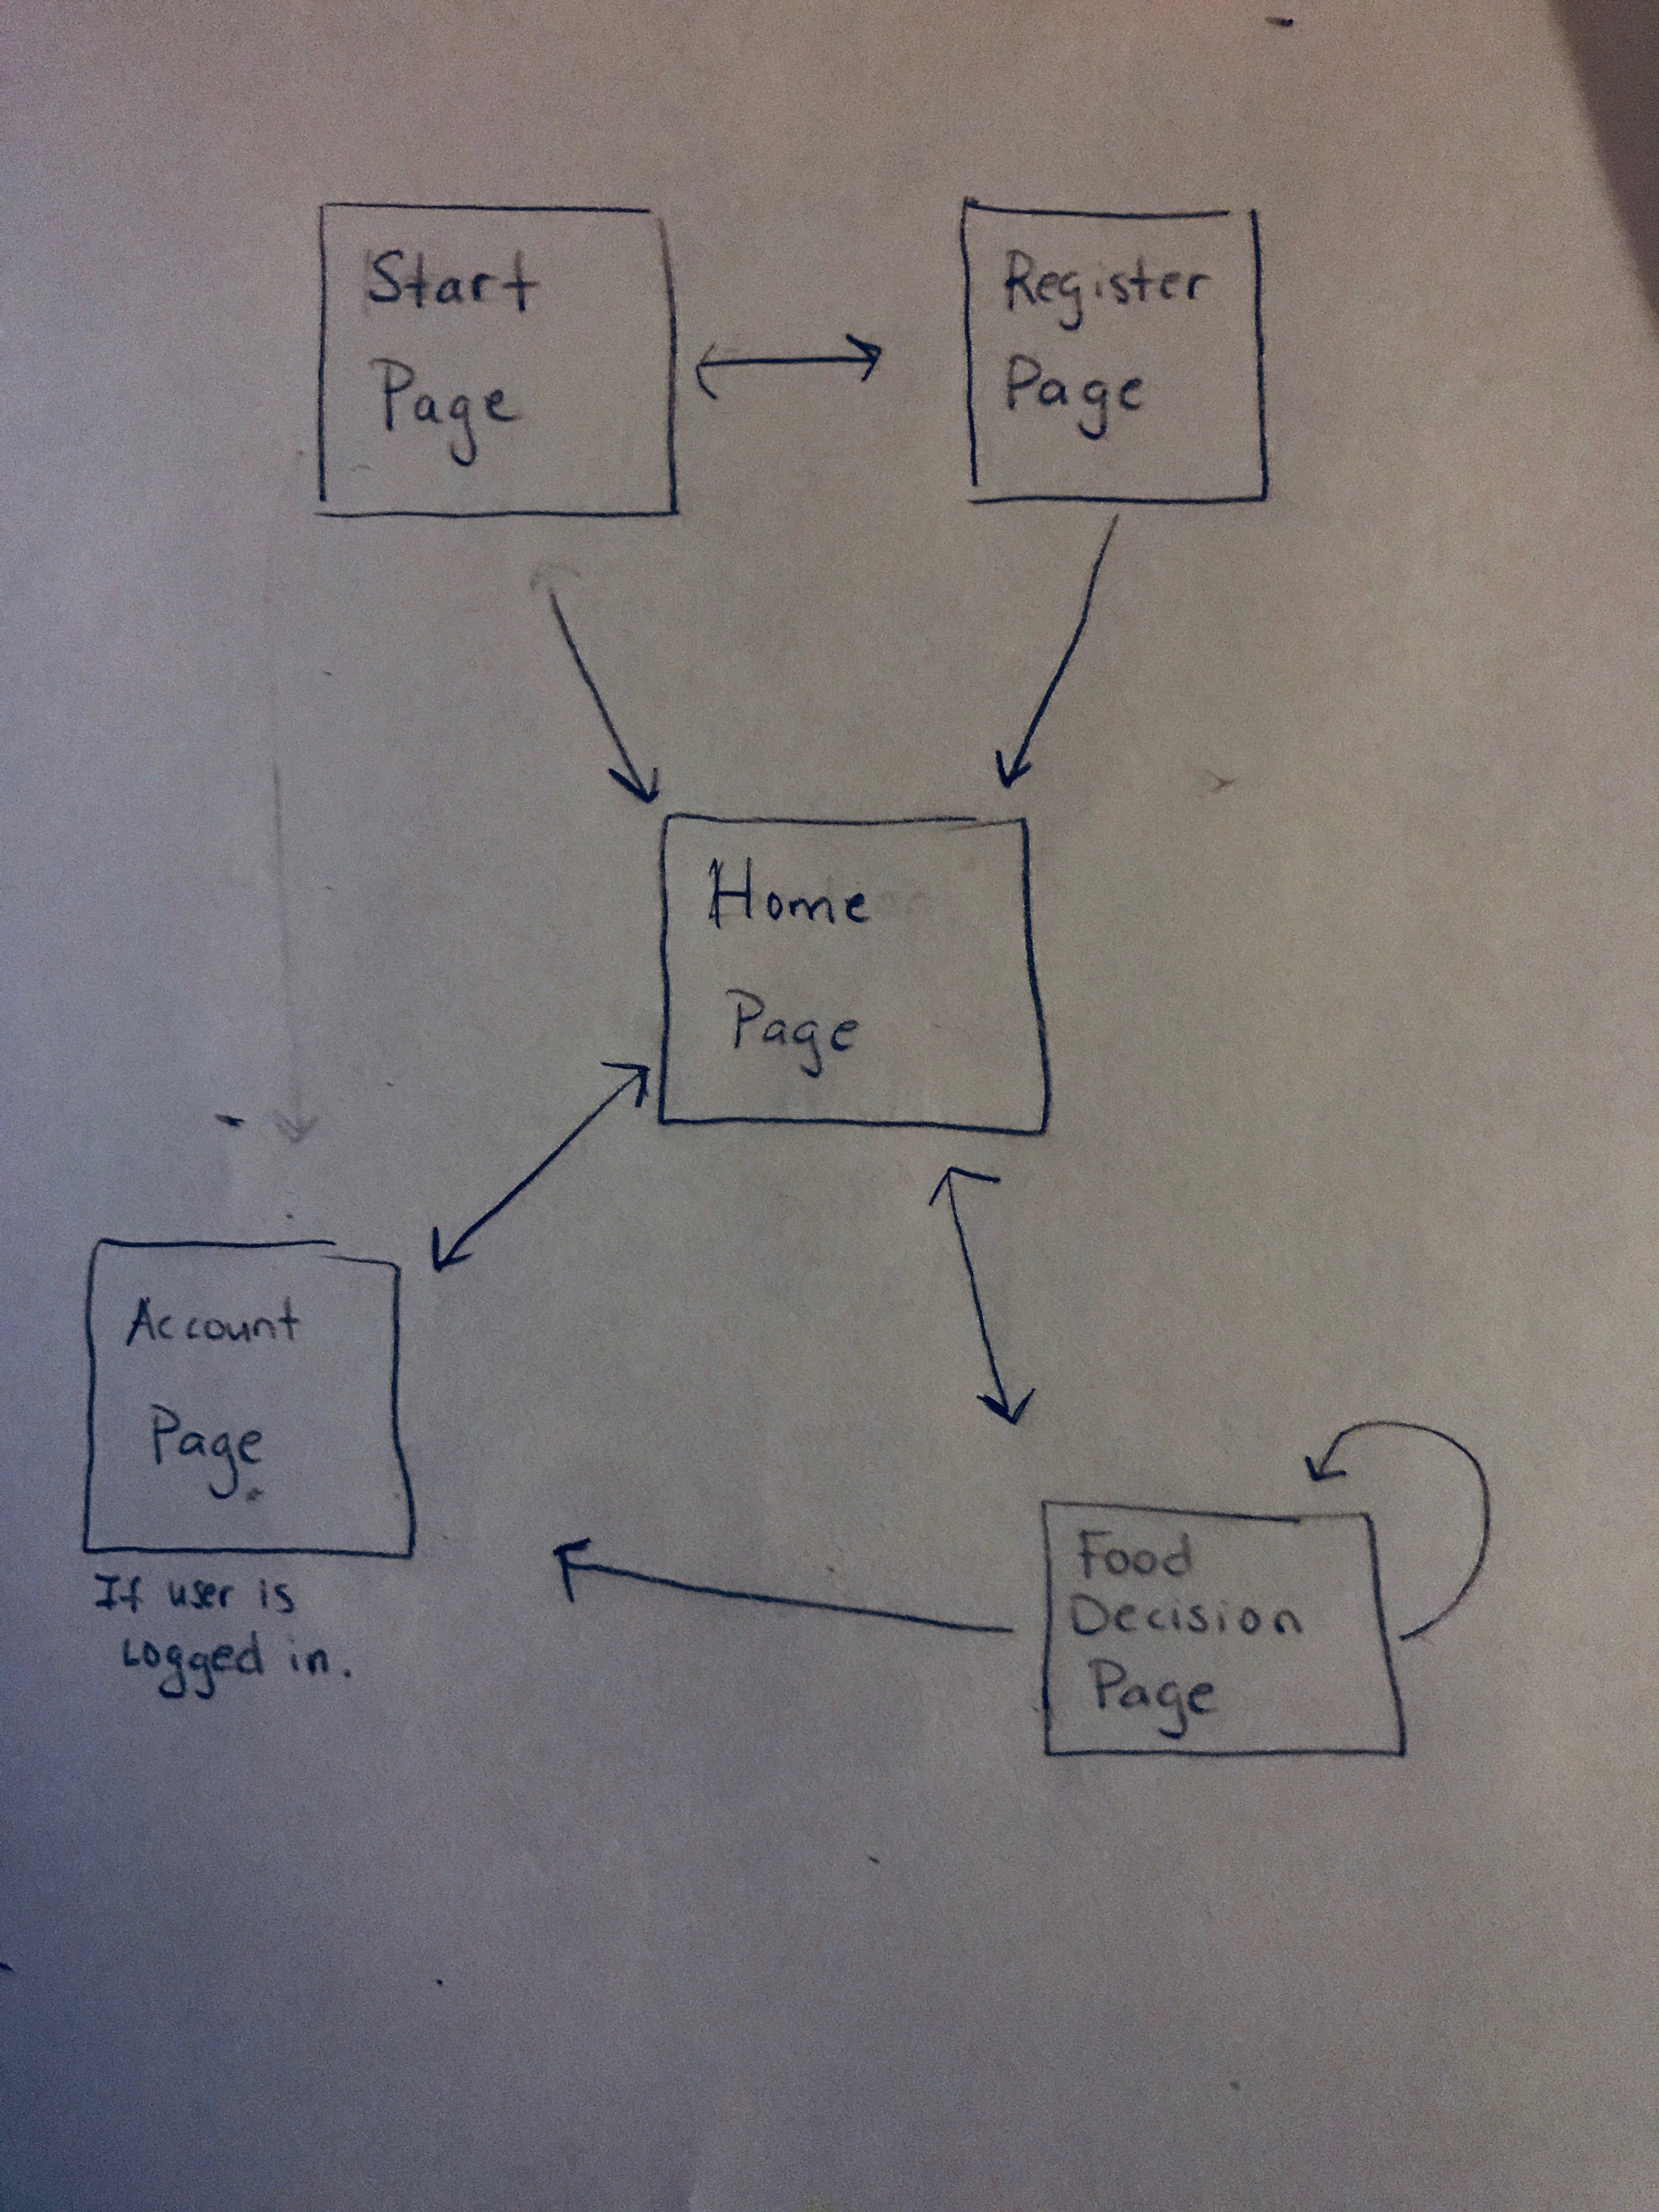 Start
Page
Register
Page
Home
Page
Account
Page
If user is
Logged in.
Food
Decision
Page